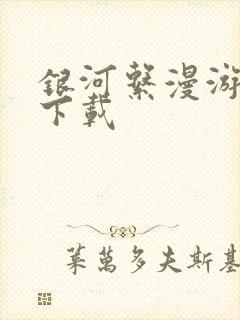 銀河繫漫游
下載
萊萬多夫斯基